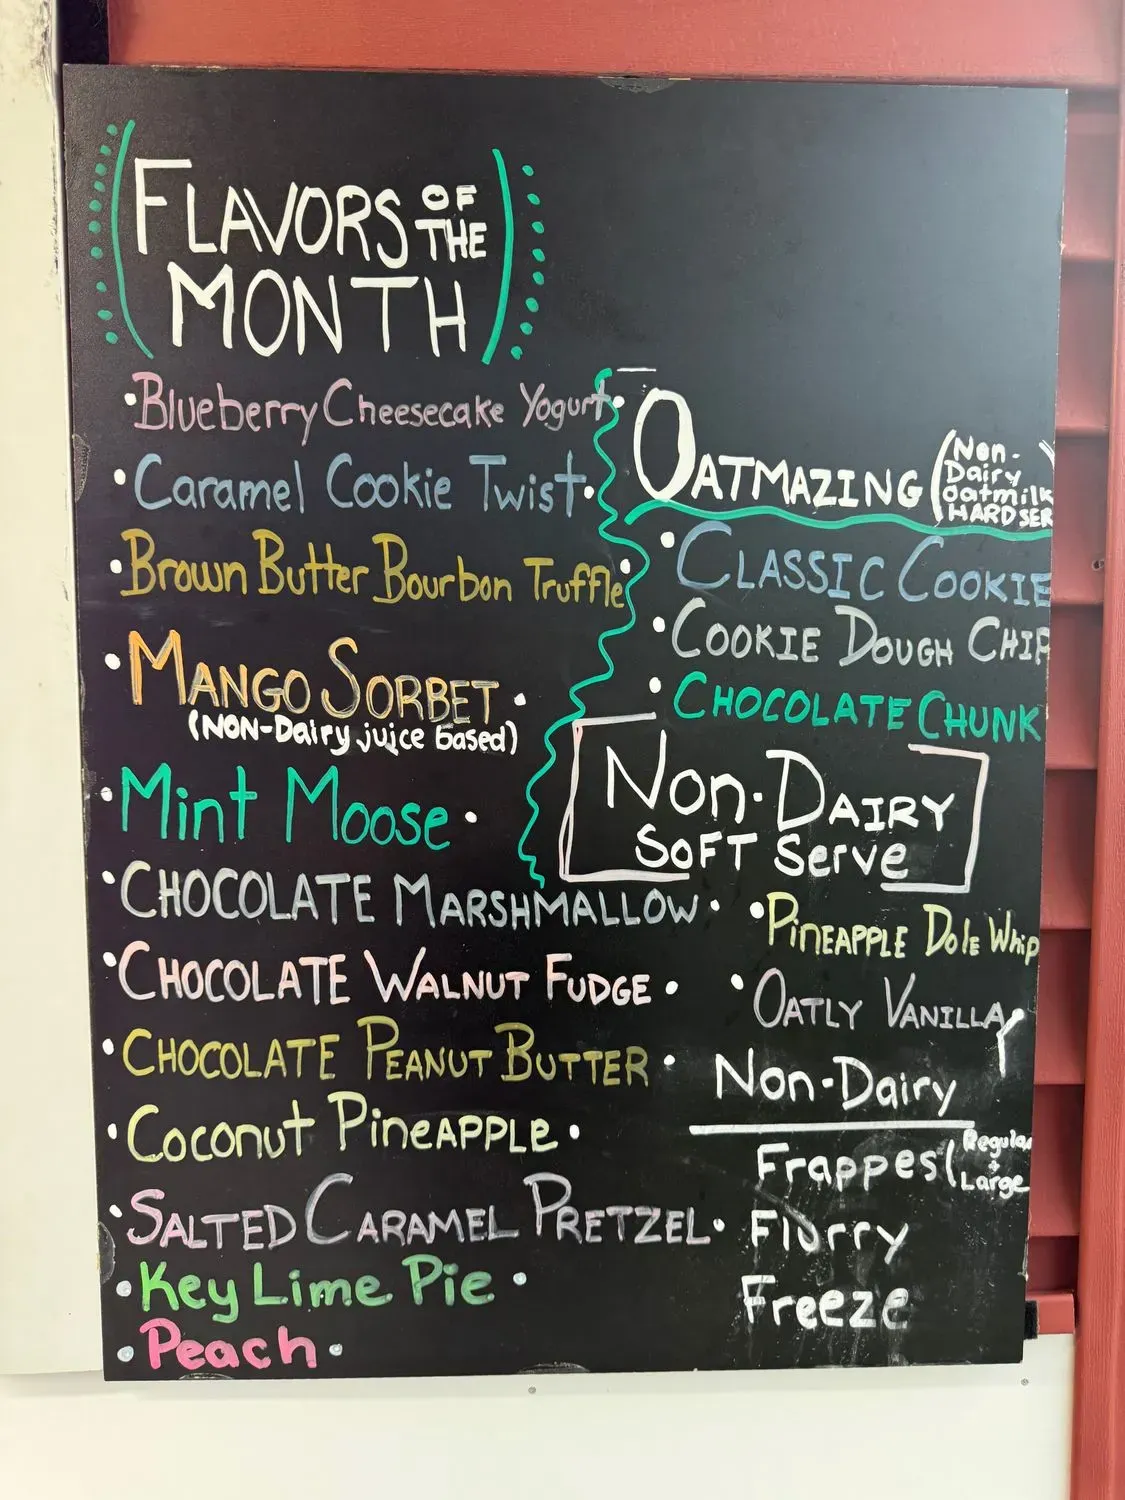 FLAVORS OF THE
MONTH
Blueberry Cheesecake Yogurt
Caramel Cookie Twist
Brown Butter Bourbon Truffle
MANGO SORBET
(NON-Dairy juice based)
Mint Moose
CHOCOLATE MARSHMALLOW
CHOCOLATE WALNUT FUDGE
CHOCOLATE PEANUT BUTTER
Coconut PineAPPLE
SALTED CARAMEL PRETZEL
Key Lime Pie
Peach
OATMAZING (Non-
Dairy
oatmilk
HARD SER
CLASSIC COOKIE
COOKIE DOUGH CHIP
CHOCOLATE CHUNK
Non-DAIRY
SOFT Serve
PINEAPPLE Dole Whip
OATLY VANILLA
Non-Dairy
Frappes (Regular
+
Large
Flurry
Freeze